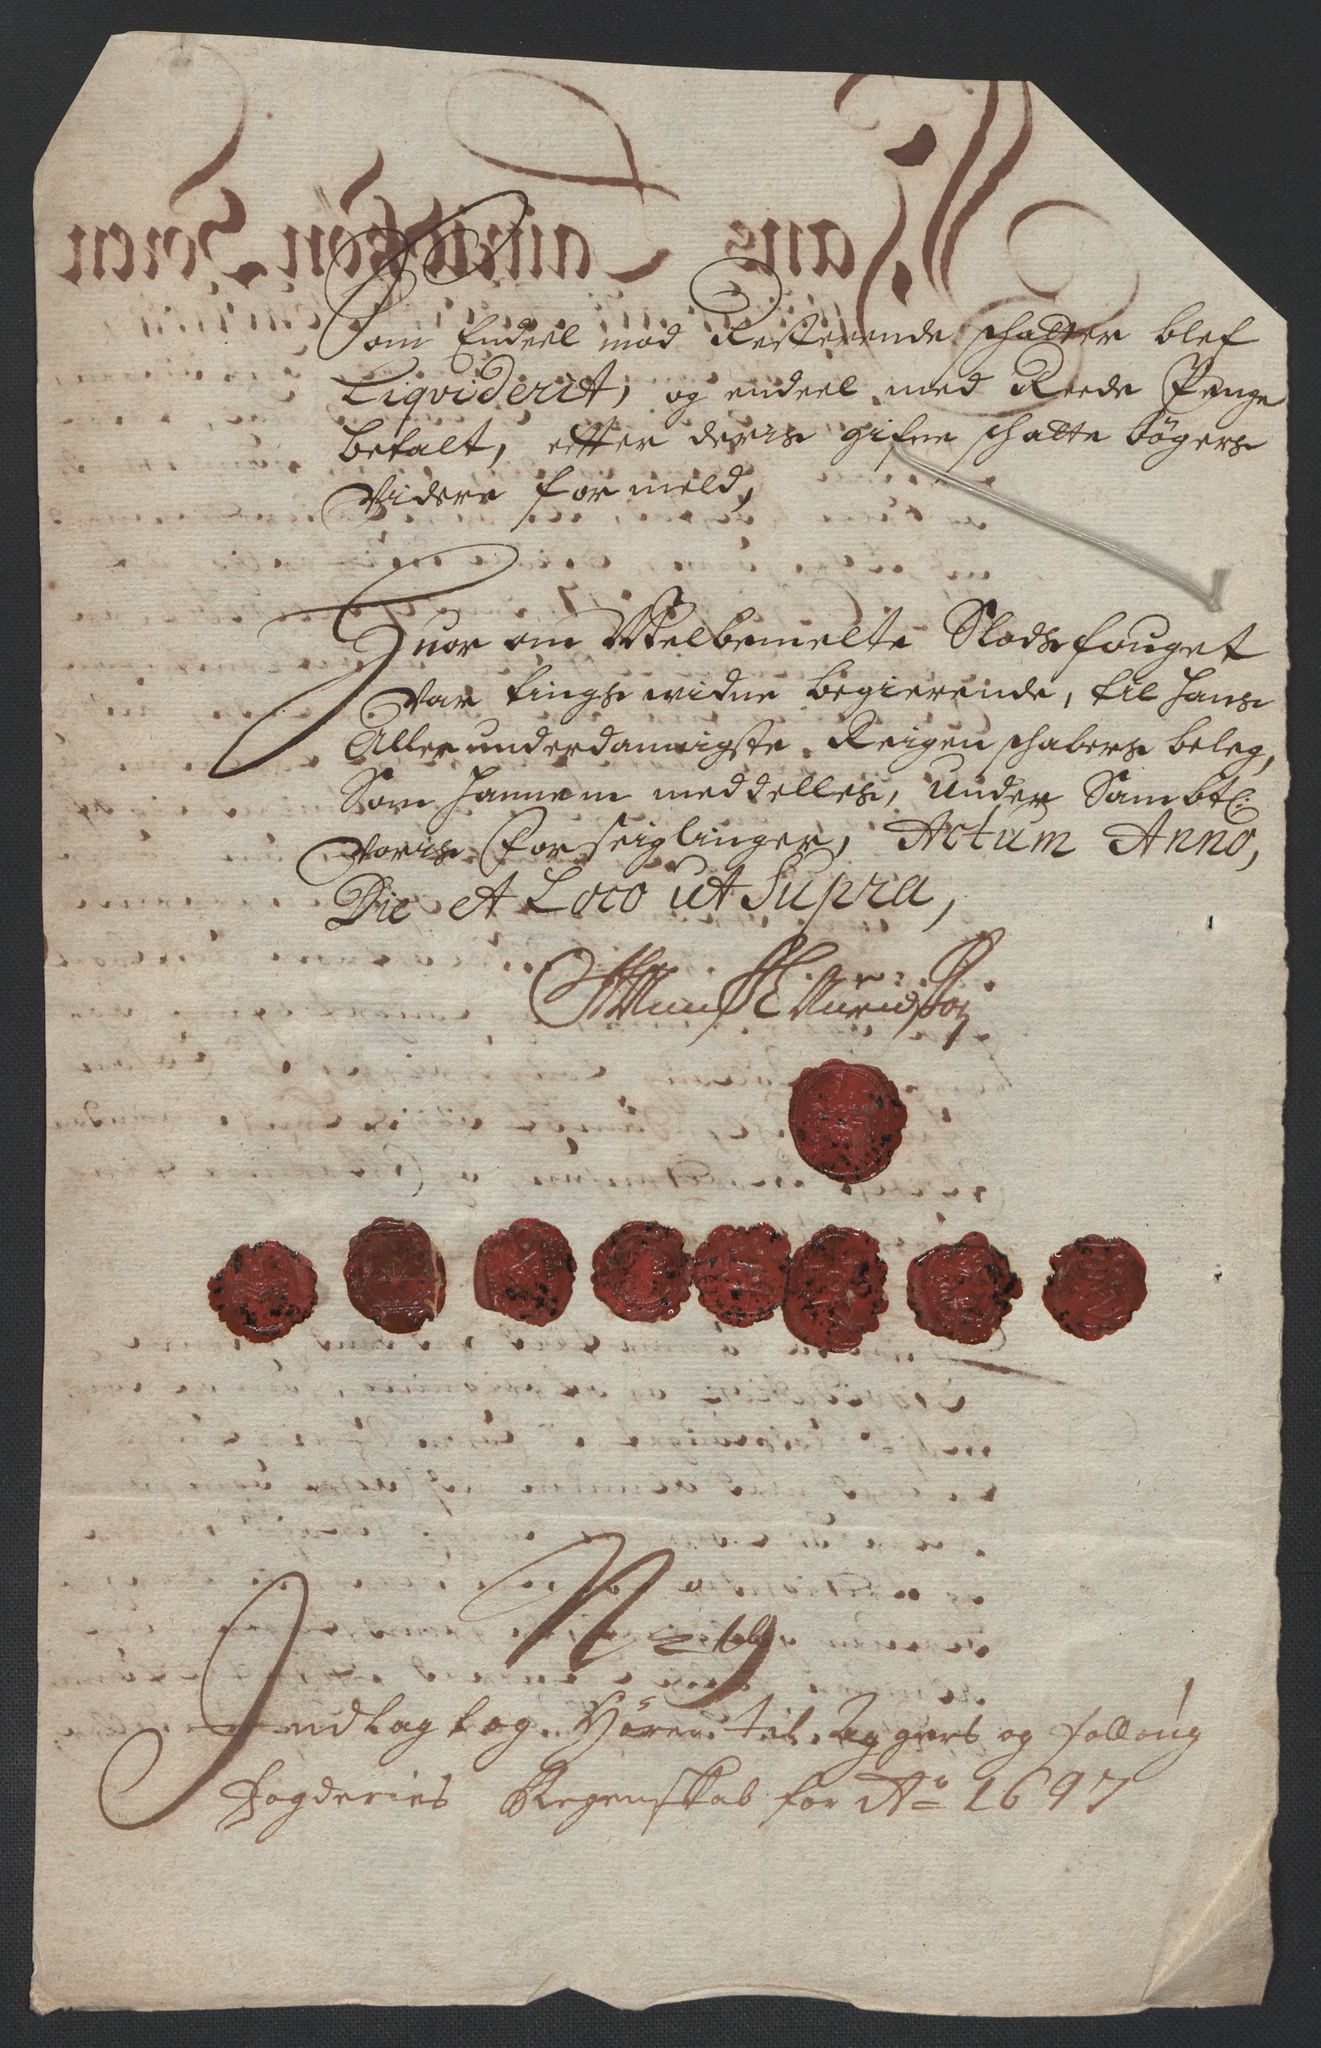 Som Endeel mod Resterende schatter blef
Liqviderit, og endeel med Rede Penge
betalt, effter deris gifne schatte bøgers
Videre formeld,
Huor om Welbemelte Slodsfouget
var tingswidne begierende, til hans
Allerunderdannigste Reigenschabers beleg,
Som hannem meddelles, under Sambtl:
voris forseiglinger, Actum Anno,
Die et Loco ut Supra,
No 19
Indlag log Hörer til Agger og folloug
fogderies Regenskab for Ao 1697